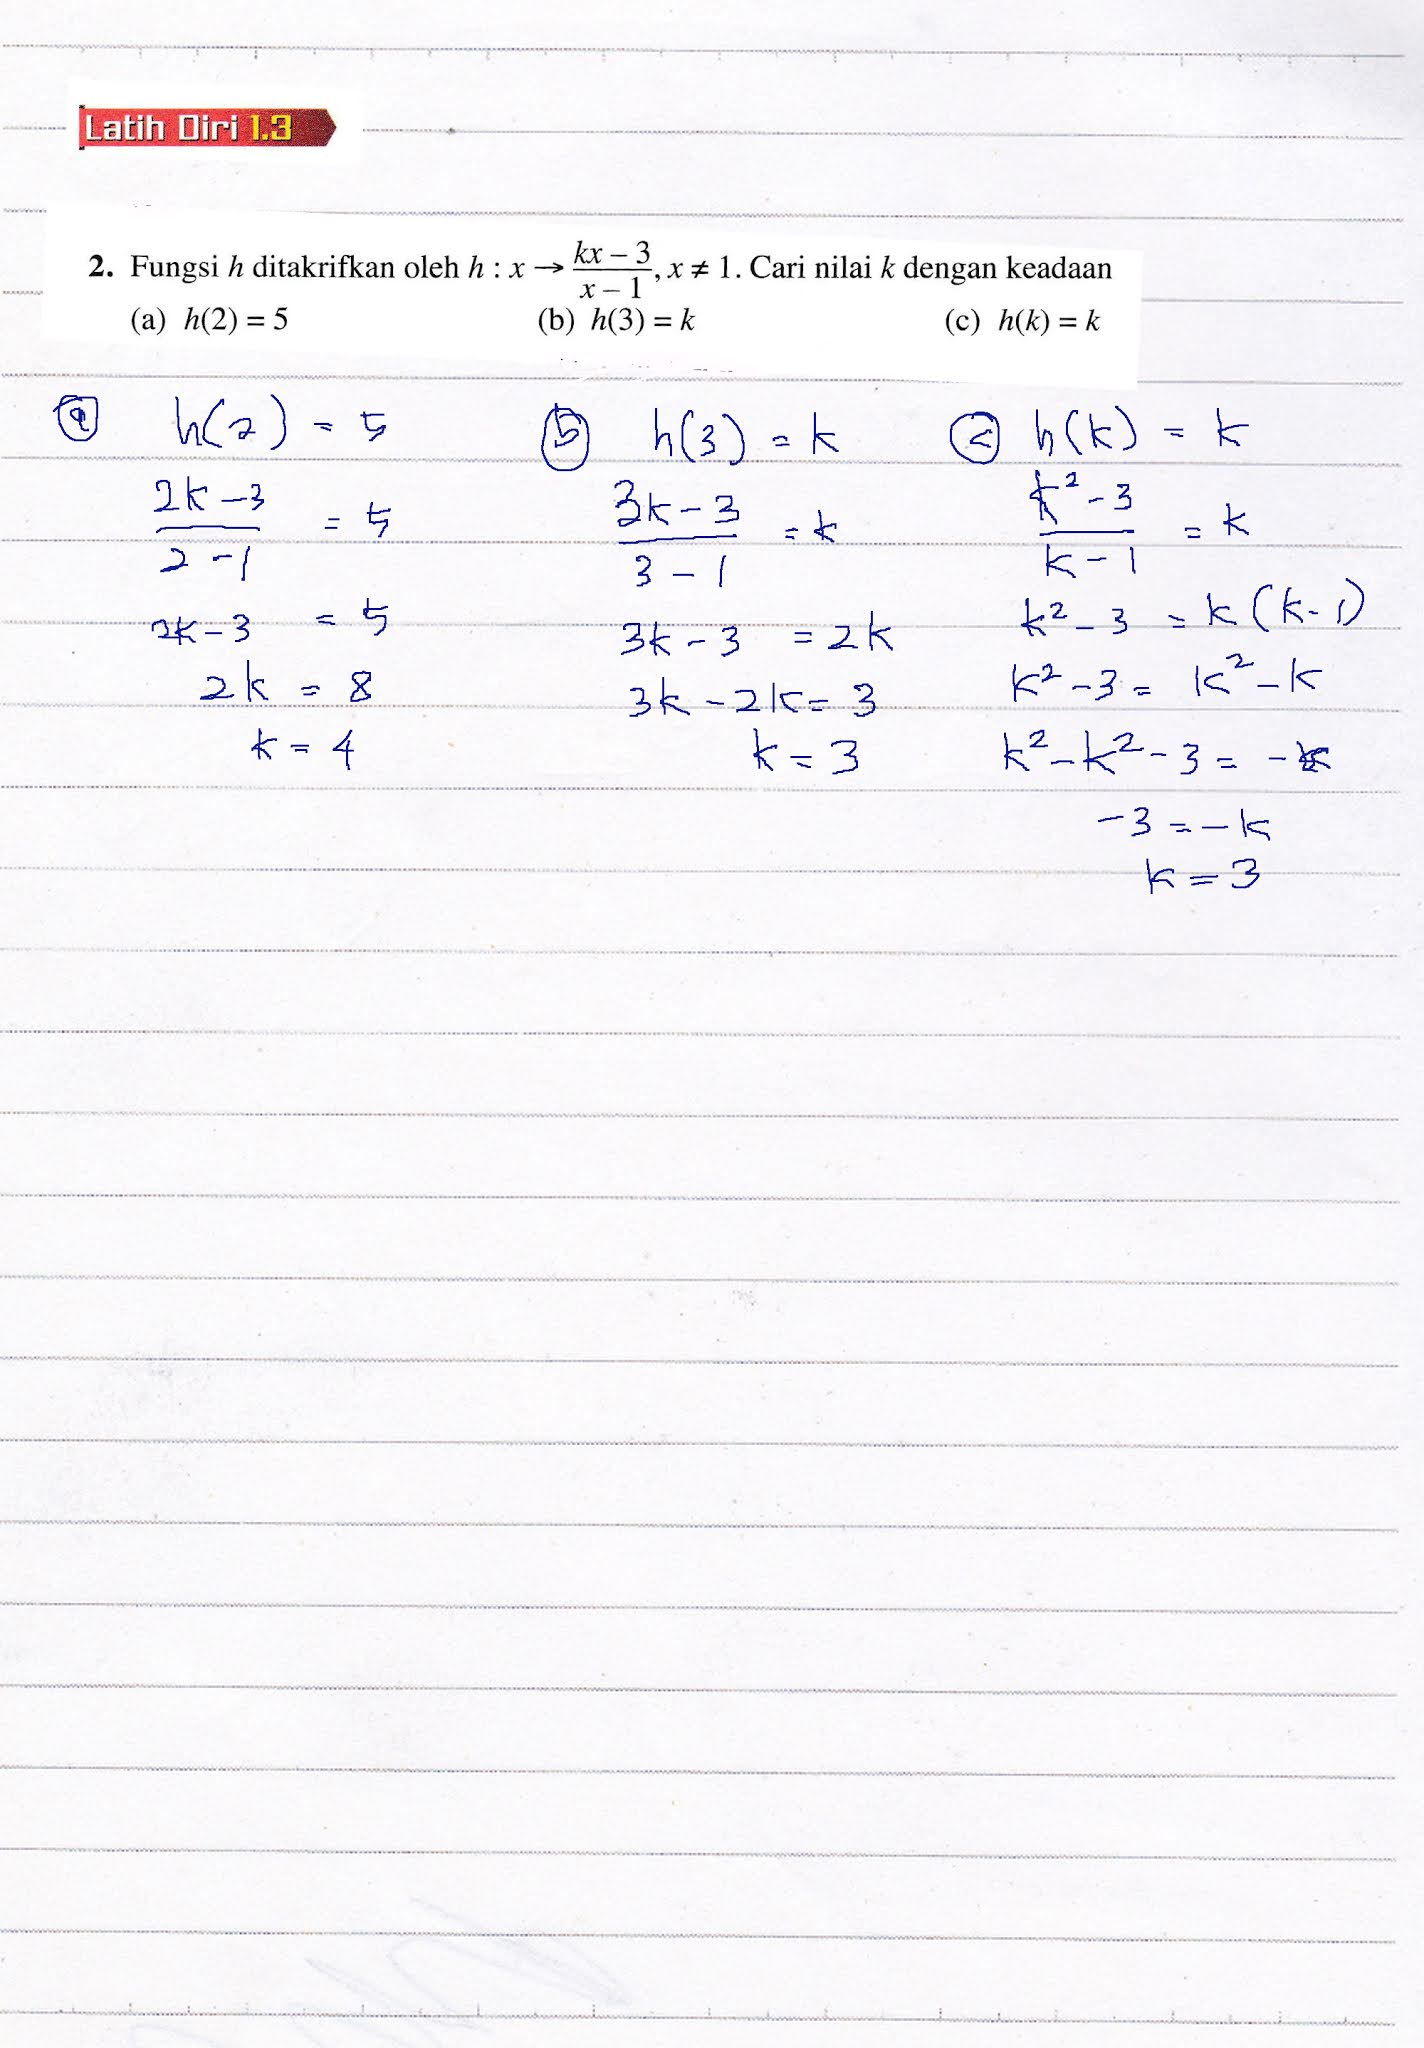 Latih Diri 1.3
2. Fungsi h ditakrifkan oleh h : x → (kx – 3)/(x – 1), x ≠ 1. Cari nilai k dengan keadaan
(a) h(2) = 5 (b) h(3) = k (c) h(k) = k
(a) h(2) = 5
(2k – 3)/(2 – 1) = 5
2k – 3 = 5
2k = 8
k = 4
(b) h(3) = k
(3k – 3)/(3 – 1) = k
3k – 3 = 2k
3k – 2k = 3
k = 3
(c) h(k) = k
(k² – 3)/(k – 1) = k
k² – 3 = k(k – 1)
k² – 3 = k² – k
k² – k² – 3 = –k
–3 = –k
k = 3